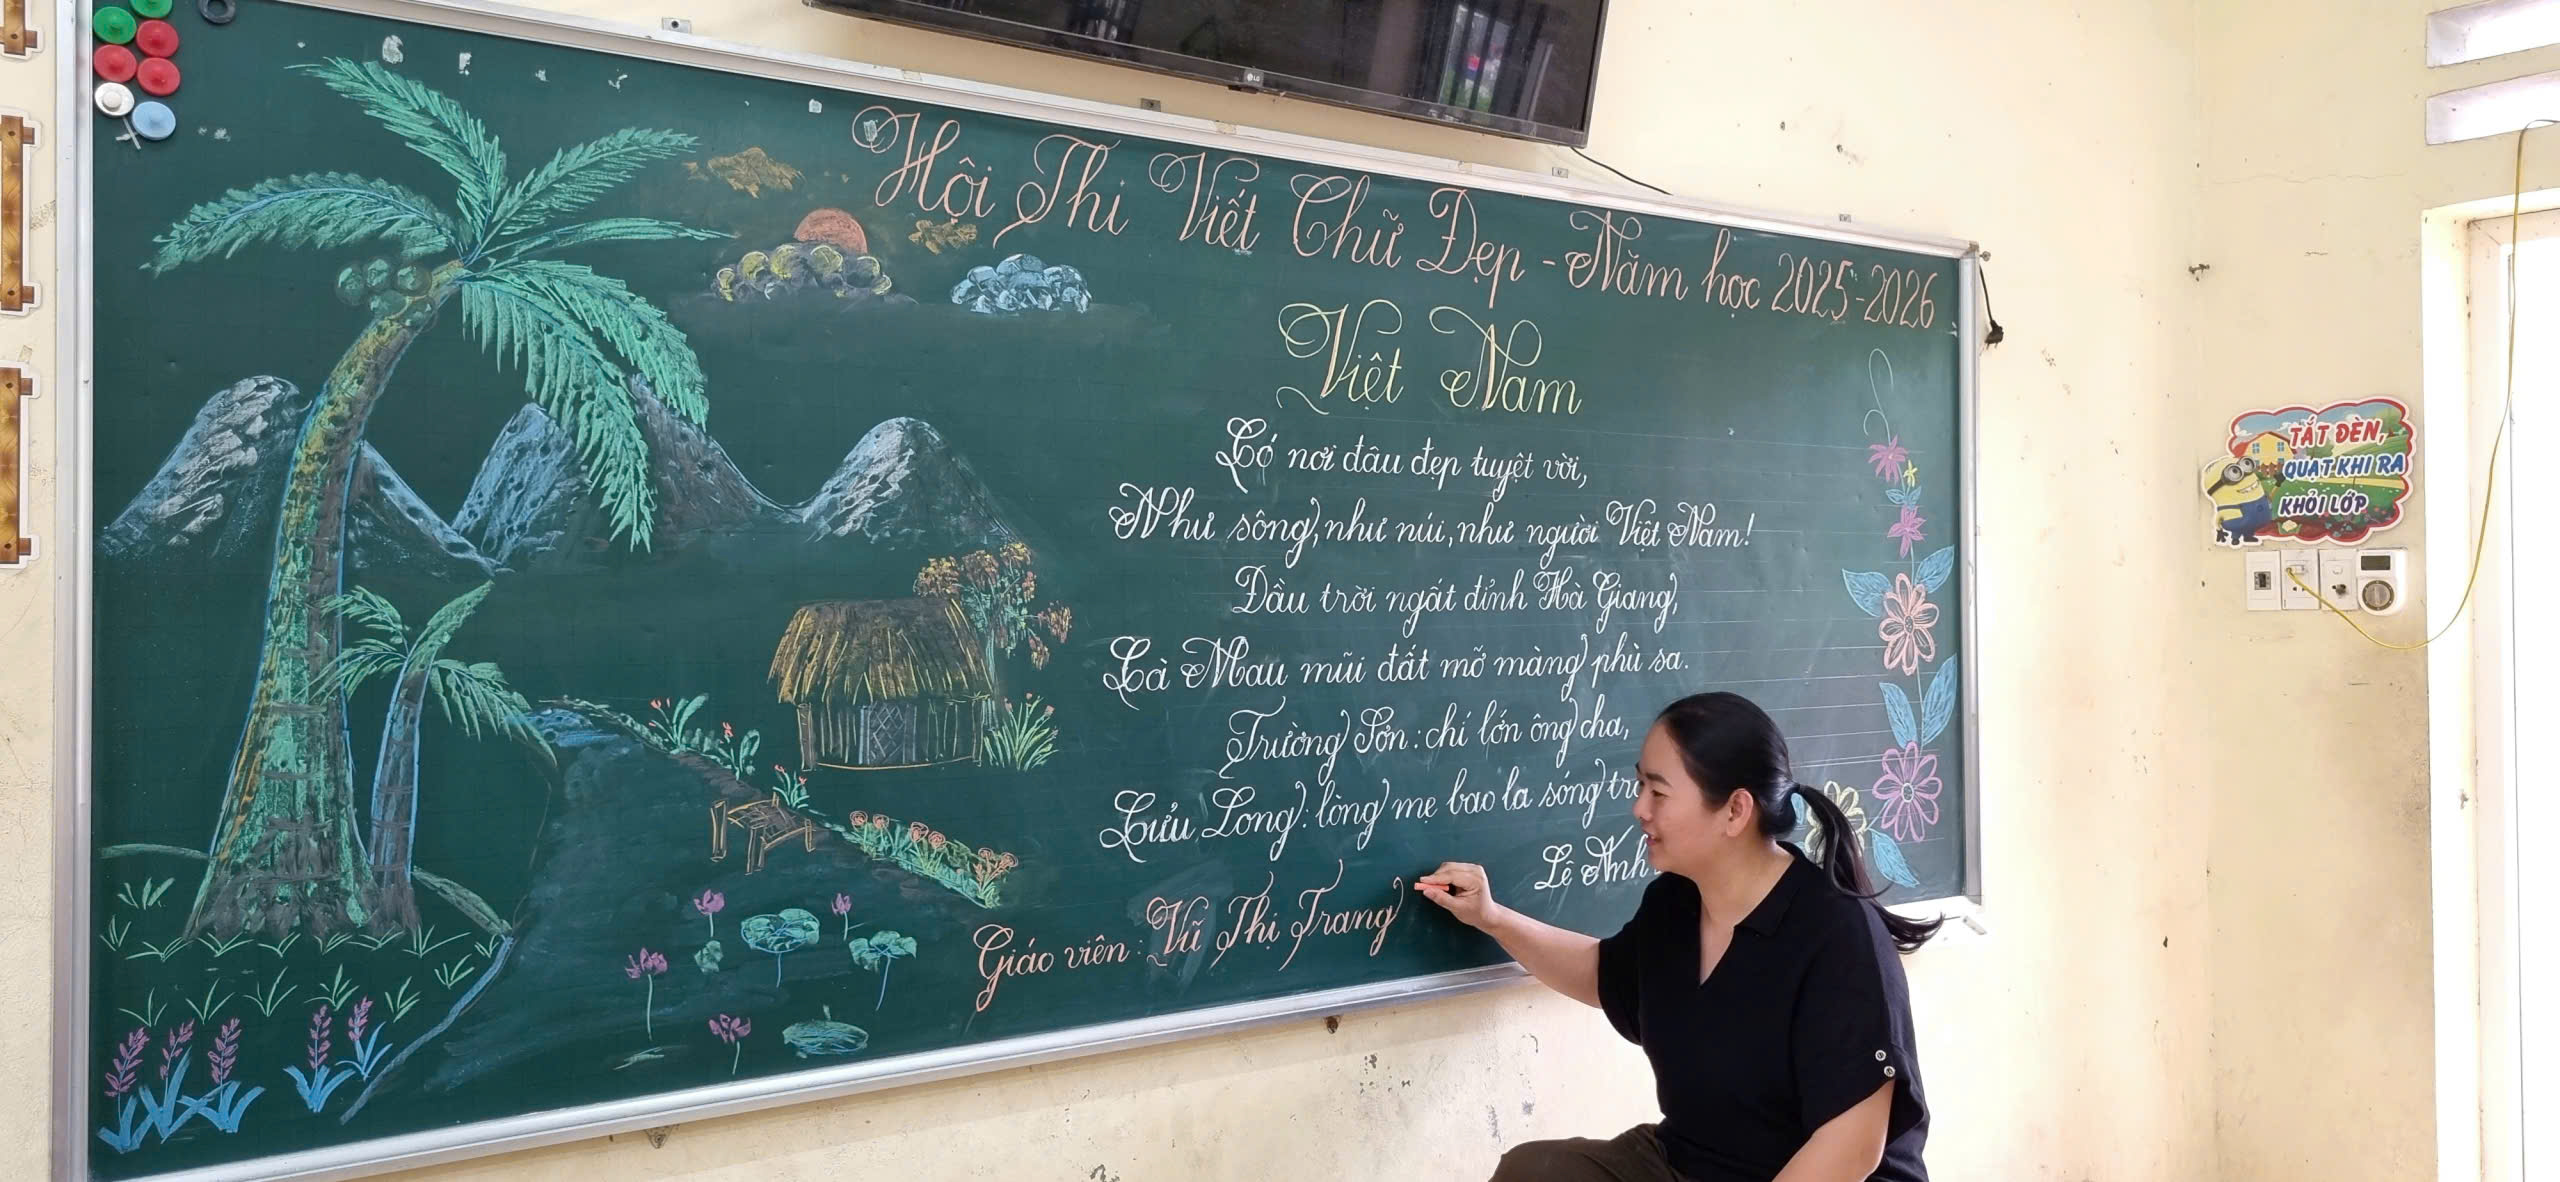 LG
Hội Thi Viết Chữ Đẹp - Năm học 2025-2026
Việt Nam
Có nơi đâu đẹp tuyệt vời,
Như sông, như núi, như người Việt Nam!
Đầu trời ngất đỉnh Hà Giang,
Cà Mau mũi đất mỡ màng phù sa.
Trường Sơn: chí lớn ông cha,
Cửu Long: lòng mẹ bao la sóng
Lê Anh
Giáo viên: Vũ Thị Trang
TẮT ĐÈN,
QUẠT KHI RA
KHỎI LỚP